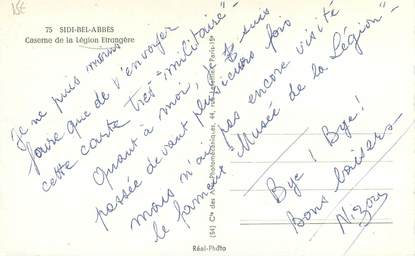 75 SIDI-BEL-ABBÈS
Caserne de la Légion Etrangère
Je ne puis moins
faire que de t'envoyer
cette carte très "militaire" -
Quant à moi, je suis
passée devant plusieurs fois
mais n'ai pas encore visité
le fameux Musée de la Légion" -
Bye ! Bye !
Bons baisers -
(54) Cie des Arts Photomécaniques, 44, rue Letellier, Paris-15e
Réal-Photo